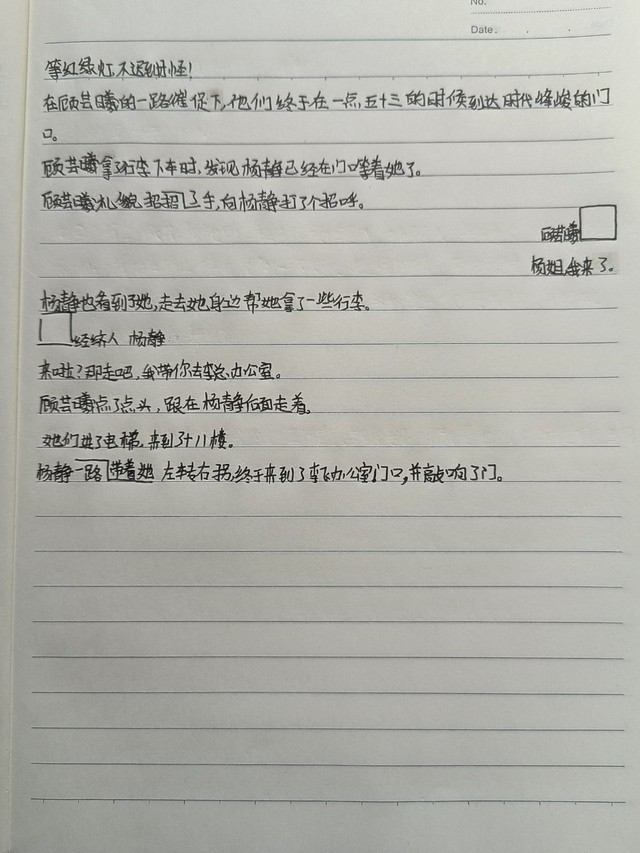 No.
Date.
等红绿灯,不迟到才怪!
在顾芸曦的一路催促下,他们终于在一点五十三的时候到达时代峰峻的门
口。
顾芸曦拿了行李下车时,发现杨静已经在门口等着她了。
顾芸曦礼貌招招了手,向杨静打了个招呼。
顾芸曦
杨姐,我来了。
杨静也看到了她,走去她身边帮她拿了一些行李。
经纪人 杨静
来啦?那走吧,我带你去李总办公室。
顾芸曦点了点头,跟在杨静后面走着。
她们进了电梯,来到了十八楼。
杨静一路带着她左转右拐,终于来到了李飞办公室门口,并敲响了门。